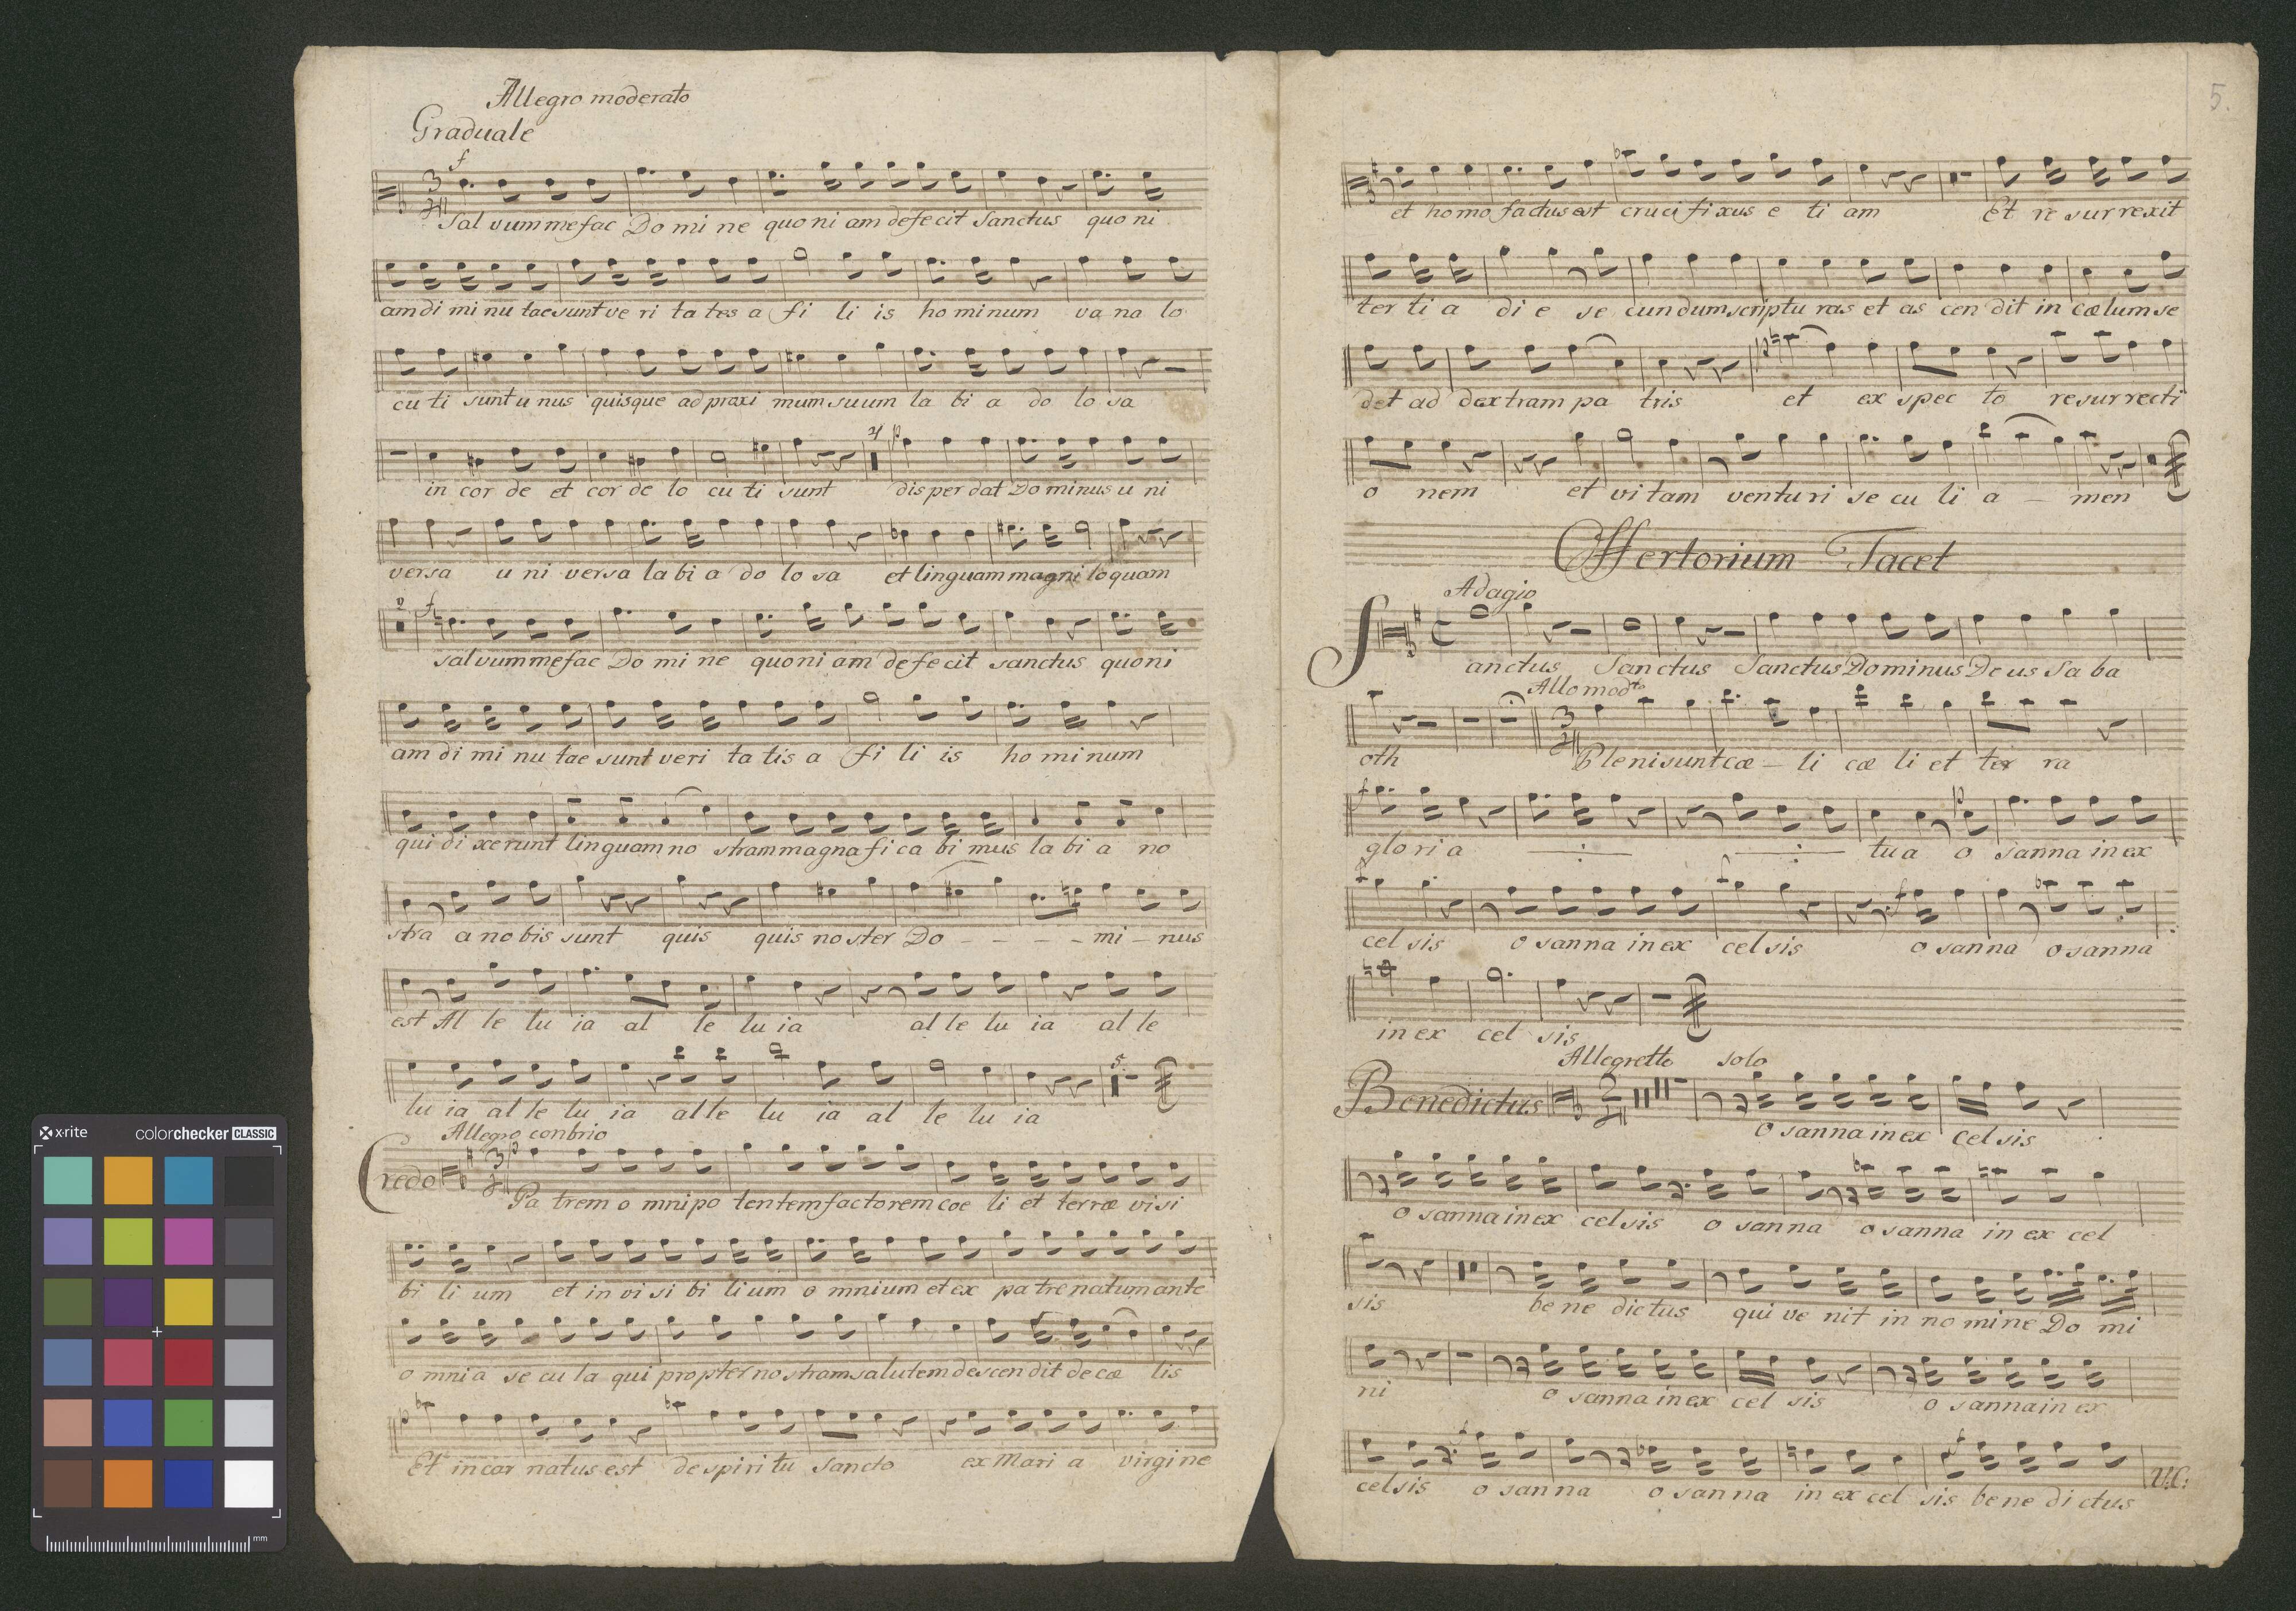 Allegro moderato
Graduale
f
Sal vum me fac Do mi ne quo ni am defe cit Sanctus quo ni
am di mi nu tae sunt ve ri ta tes a fi li is ho mi num va na lo
cu ti sunt u nus quisque ad proxi mum suum la bi a do lo sa
in cor de et cor de lo cu ti sunt dis per dat Do minus u ni
versa u ni versa la bi a do lo sa et linguam magni loquam
sal vum me fac Do mi ne quo ni am de fe cit sanctus quo ni
am di mi nu tae sunt veri ta tis a fi li is ho mi num
qui di xerunt linguam no stram magna fi ca bi mus la bi a no
stra a no bis sunt quis quis no ster Do - - - - mi - nus
est Al le lu ia al le lu ia al le lu ia al le
lu ia al le lu ia al le lu ia al le lu ia
5
Allegro con brio
Credo
Pa trem o mni po tentem factorem coe li et terræ vi si
bi li um et in vi si bi li um o mnium et ex pa tre natum ante
o mni a se cu la qui propter nostram salutem descen dit de cæ lis
Et incar natus est de spiri tu Sancto ex Mari a virgine
5.
et homo factus est cruci fi xus e ti am Et re sur rexit
ter ti a di e se cundum scriptu ras et as cen dit in cælum se
det ad dextram pa tris et ex spec to resur recti
o nem et vi tam ventu ri se cu li a - men
Offertorium Tacet
Adagio
Sanctus Sanctus Sanctus Dominus De us Sa ba
Allo modto
oth Pleni sunt cæ - li cæ li et ter ra
glo ri a tu a o sanna in ex
cel sis o sanna in ex cel sis o sanna o sanna
in ex cel sis
Allegretto solo
Benedictus
O sanna in ex cel sis
o sanna in ex cel sis o sanna o sanna in ex cel
sis be ne dictus qui ve nit in no mi ne Do mi
ni o sanna in ex cel sis o sanna in ex
celsis o sanna o sanna in ex cel sis be ne di ctus